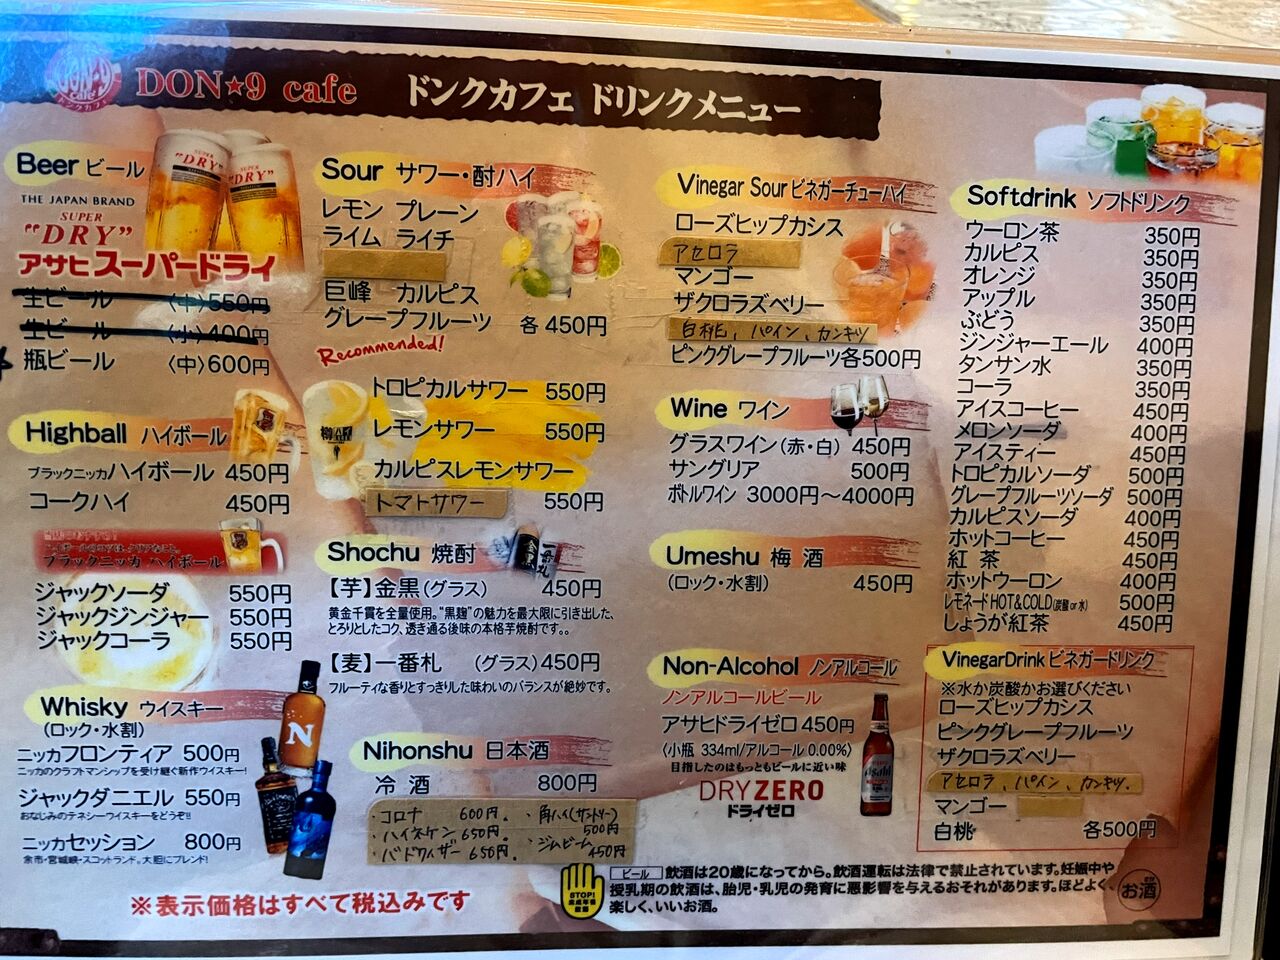 DON★9 cafe ドンクカフェ ドリンクメニュー
Beer ビール
THE JAPAN BRAND
SUPER
"DRY"
アサヒスーパードライ
生ビール 〈中〉550円
生ビール 〈小〉400円
瓶ビール 〈中〉600円
Highball ハイボール
ブラックニッカハイボール 450円
コークハイ 450円
ブラックニッカ ハイボール
ジャックソーダ 550円
ジャックジンジャー 550円
ジャックコーラ 550円
Whisky ウイスキー
(ロック・水割)
ニッカフロンティア 500円
ニッカのクラフトマンシップを受け継ぐ新作ウイスキー!
ジャックダニエル 550円
おなじみのテネシーウイスキーをどうぞ!!
ニッカセッション 800円
余市・宮城峡・スコットランド。大胆にブレンド!
※表示価格はすべて税込みです
Sour サワー・酎ハイ
レモン プレーン
ライム ライチ
巨峰 カルピス
グレープフルーツ 各450円
Recommended!
トロピカルサワー 550円
レモンサワー 550円
カルピスレモンサワー
トマトサワー 550円
Shochu 焼酎
【芋】金黒(グラス) 450円
黄金千貫を全量使用。"黒麹"の魅力を最大限に引き出した、
とろりとしたコク、透き通る後味の本格芋焼酎です。。
【麦】一番札 (グラス)450円
フルーティな香りとすっきりした味わいのバランスが絶妙です。
Nihonshu 日本酒
冷酒 800円
・コロナ 600円.
・ハイネケン 650円.
・バドワイザー 650円.
・角ハイ(サントリー) 500円
・ジムビーム 450円
Vinegar Sour ビネガーチューハイ
ローズヒップカシス
アセロラ
マンゴー
ザクロラズベリー
白桃、パイン、カンキツ
ピンクグレープフルーツ各500円
Wine ワイン
グラスワイン(赤・白) 450円
サングリア 500円
ボトルワイン 3000円〜4000円
Umeshu 梅酒
(ロック・水割) 450円
Non-Alcohol ノンアルコール
ノンアルコールビール
アサヒドライゼロ 450円
〈小瓶 334ml/アルコール 0.00%〉
目指したのはもっともビールに近い味
DRYZERO
ドライゼロ
Softdrink ソフトドリンク
ウーロン茶 350円
カルピス 350円
オレンジ 350円
アップル 350円
ぶどう 350円
ジンジャーエール 400円
タンサン水 350円
コーラ 350円
アイスコーヒー 450円
メロンソーダ 400円
アイスティー 450円
トロピカルソーダ 500円
グレープフルーツソーダ 500円
カルピスソーダ 400円
ホットコーヒー 450円
紅茶 450円
ホットウーロン 400円
レモネードHOT&COLD(炭酸or水) 500円
しょうが紅茶 450円
VinegarDrink ビネガードリンク
※水か炭酸かお選びください
ローズヒップカシス
ピンクグレープフルーツ
ザクロラズベリー
アセロラ、パイン、カンキツ.
マンゴー
白桃 各500円
STOP!
ビール 飲酒は20歳になってから。飲酒運転は法律で禁止されています。妊娠中や
授乳期の飲酒は、胎児・乳児の発育に悪影響を与えるおそれがあります。ほどよく、
楽しく、いいお酒。
お酒